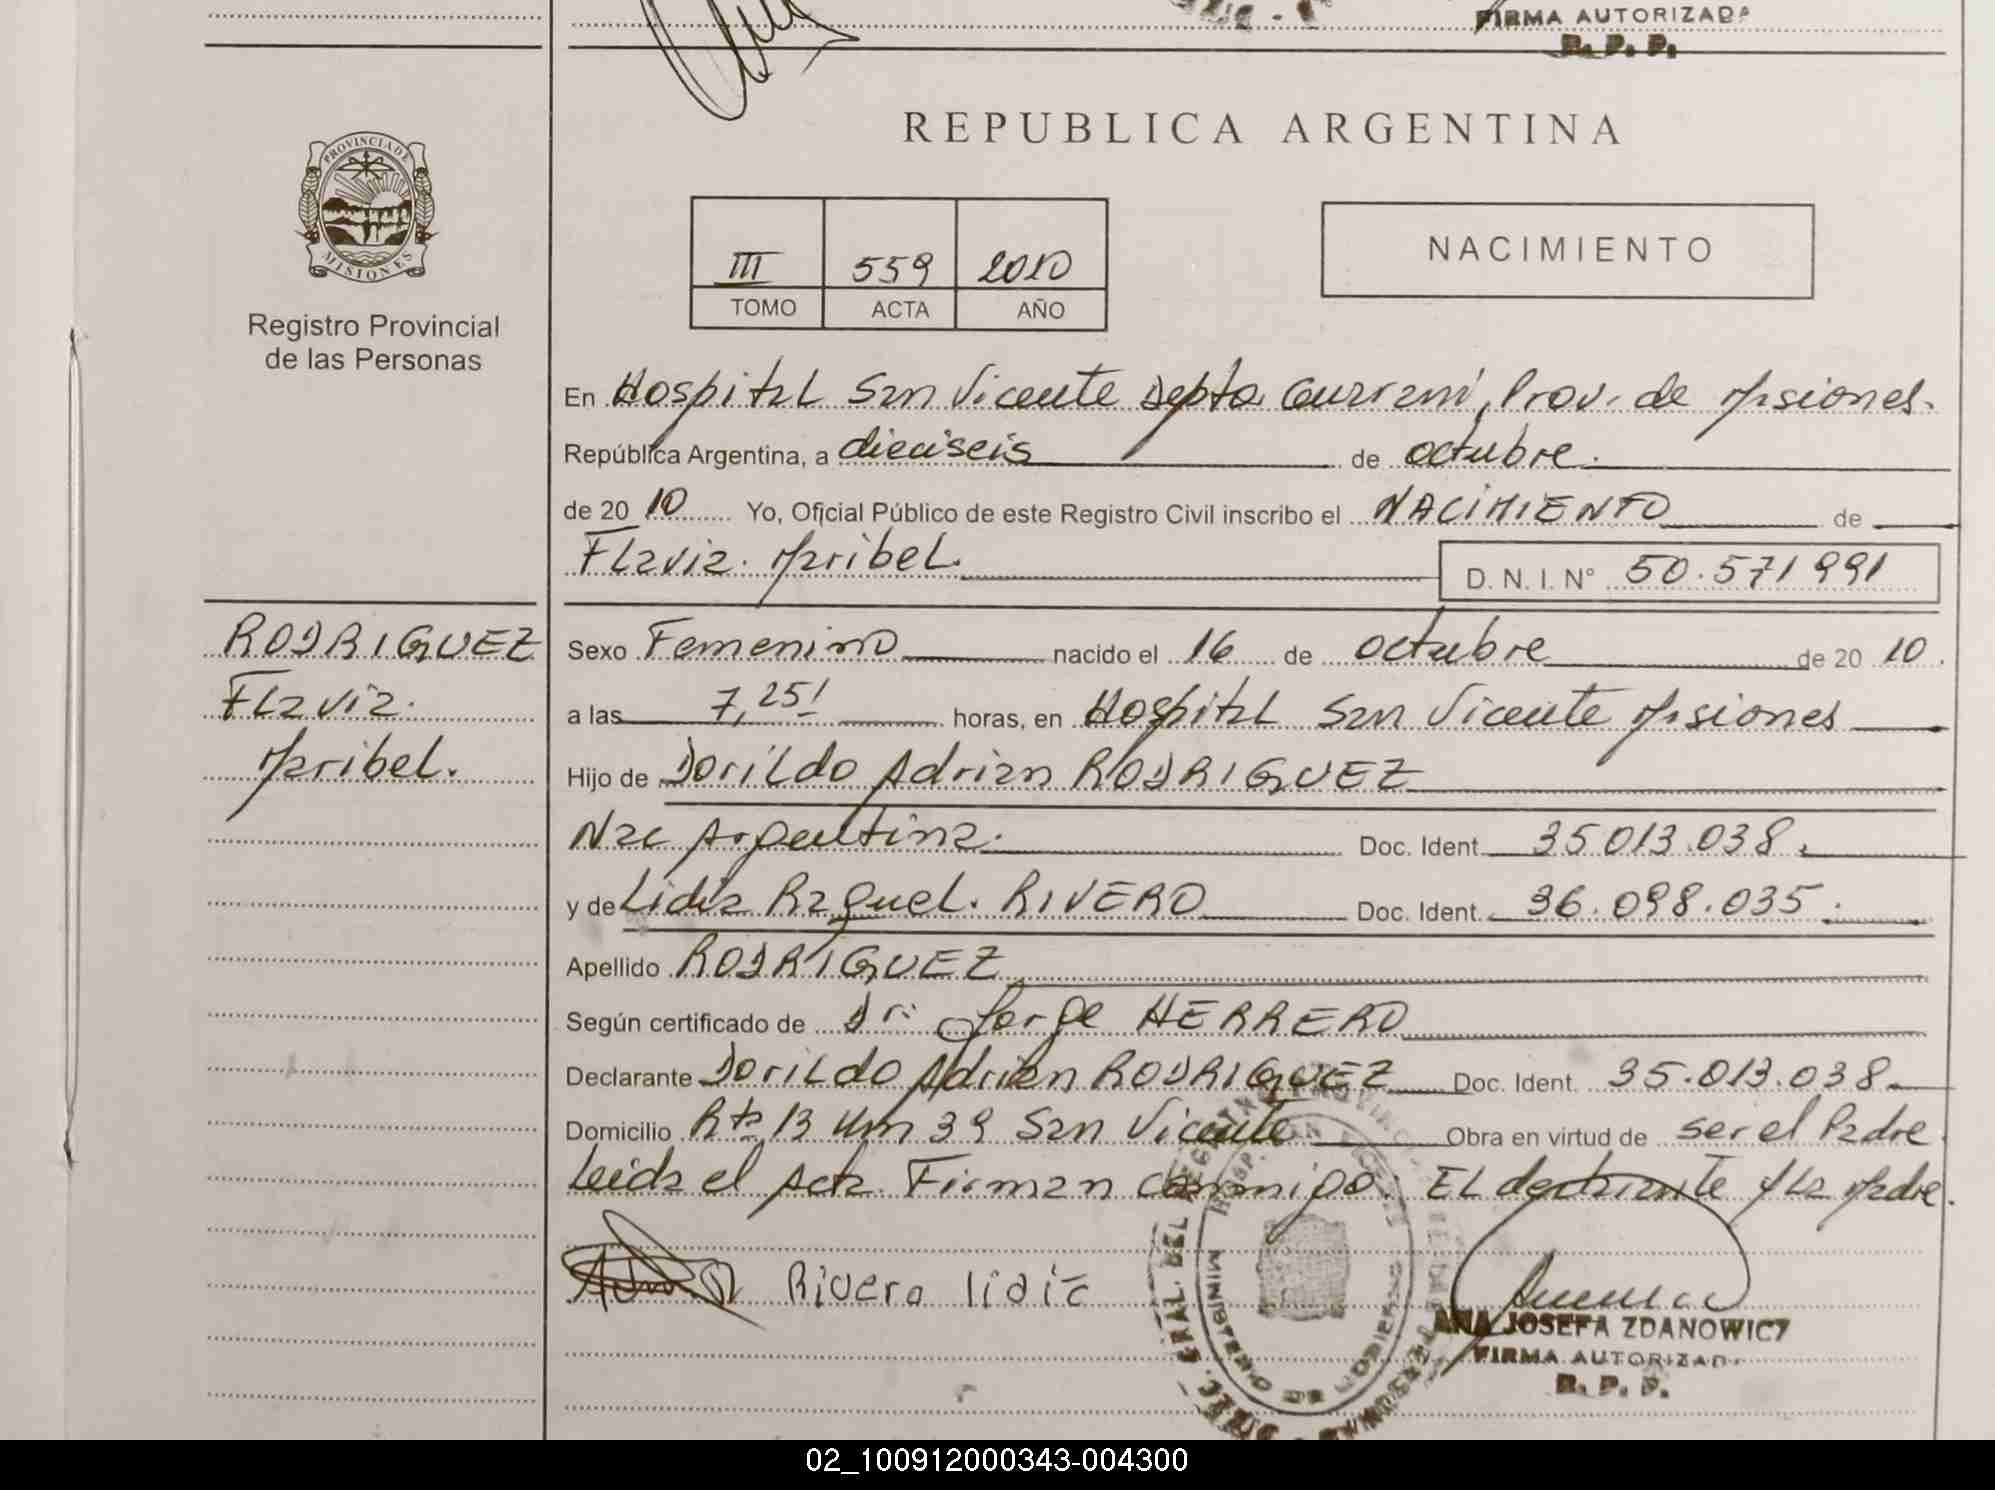 FIRMA AUTORIZADA
R. P. P.
PROVINCIA DE
MISIONES
Registro Provincial
de las Personas
REPUBLICA ARGENTINA
III 559 2010
TOMO ACTA AÑO
NACIMIENTO
En Hospital San Vicente Depto Guarani, Prov. de Misiones.
República Argentina, a dieciseis de octubre.
de 20 10 Yo, Oficial Público de este Registro Civil inscribo el NACIMIENTO de
Flavia. Maribel. D. N. I. N° 50.571991
RODRIGUEZ
Flavia.
Maribel.
Sexo Femenino nacido el 16 de octubre de 20 10.
a las 7,25' horas, en Hospital San Vicente Misiones
Hijo de Dorildo Adrian RODRIGUEZ
Nac Argentina. Doc. Ident. 35 013.038.
y de Lidia Raquel. RIVERO Doc. Ident. 36.098.035.
Apellido RODRIGUEZ
Según certificado de Dr: Jorge HERRERO
Declarante Dorildo Adrian RODRIGUEZ Doc. Ident. 35.013.038.
Domicilio Rta 13 Km 39 San Vicente Obra en virtud de ser el Padre.
Leida el Acta Firman conmigo. El declarante y la Madre.
Rivero lidia
MINISTERIO DE GOBIERNO
ANA JOSEFA ZDANOWICZ
FIRMA AUTORIZADA
R. P. P.
02_100912000343-004300